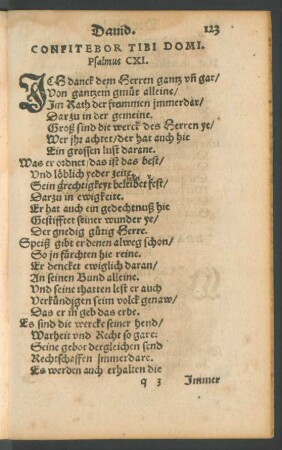 Dauid.
123
CONFITEBOR TIBI DOMI.
Psalmus CXI.
ICH danck dem Herren gantz vñ gar/
Von gantzem gmüt alleine/
Im Rath der frommen jmmerdar/
Darzu in der gemeine.
Groß sind die werck des Herren ye/
Wer jhr achtet/ der hat auch hie
Ein grossen lust darane.
Was er ordnet/ das ist das best/
Und löblich yeder zeite
Sein grechtigkeyt bleibet fest/
Darzu in ewigkeite.
Er hat auch ein gedechtnuß hie
Gestifftet seiner wunder ye/
Der gnedig gütig Herre.
Speiß gibt er denen alweg schon/
So jn fürchten hie reine.
Er dencket ewiglich daran/
An seinen Bund alleine.
Und seine thatten lest er auch
Verkündigen seim volck genaw/
Das er in geb das erbe.
Es sind die wercke seiner hend/
Warheit vnd Recht so gare:
Seine gebot dergleichen send
Rechtschaffen jmmerdare.
Es werden auch erhalten die
q 3
Immer